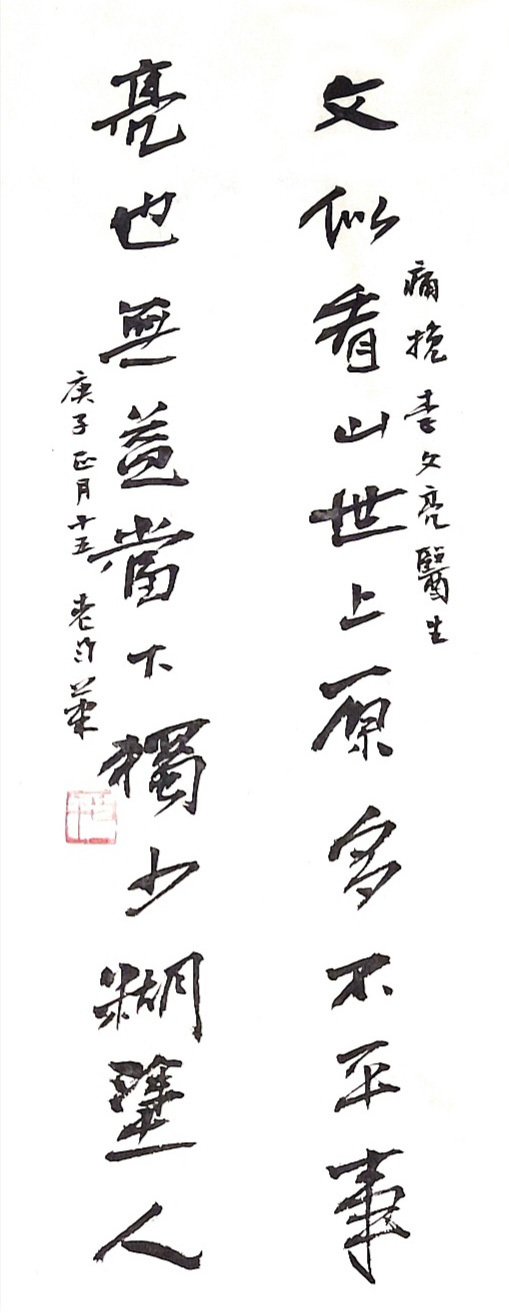 痛挽李文亮醫生
文似看山世上原多不平事
亮也無益當下獨少糊塗人
庚子正月十五